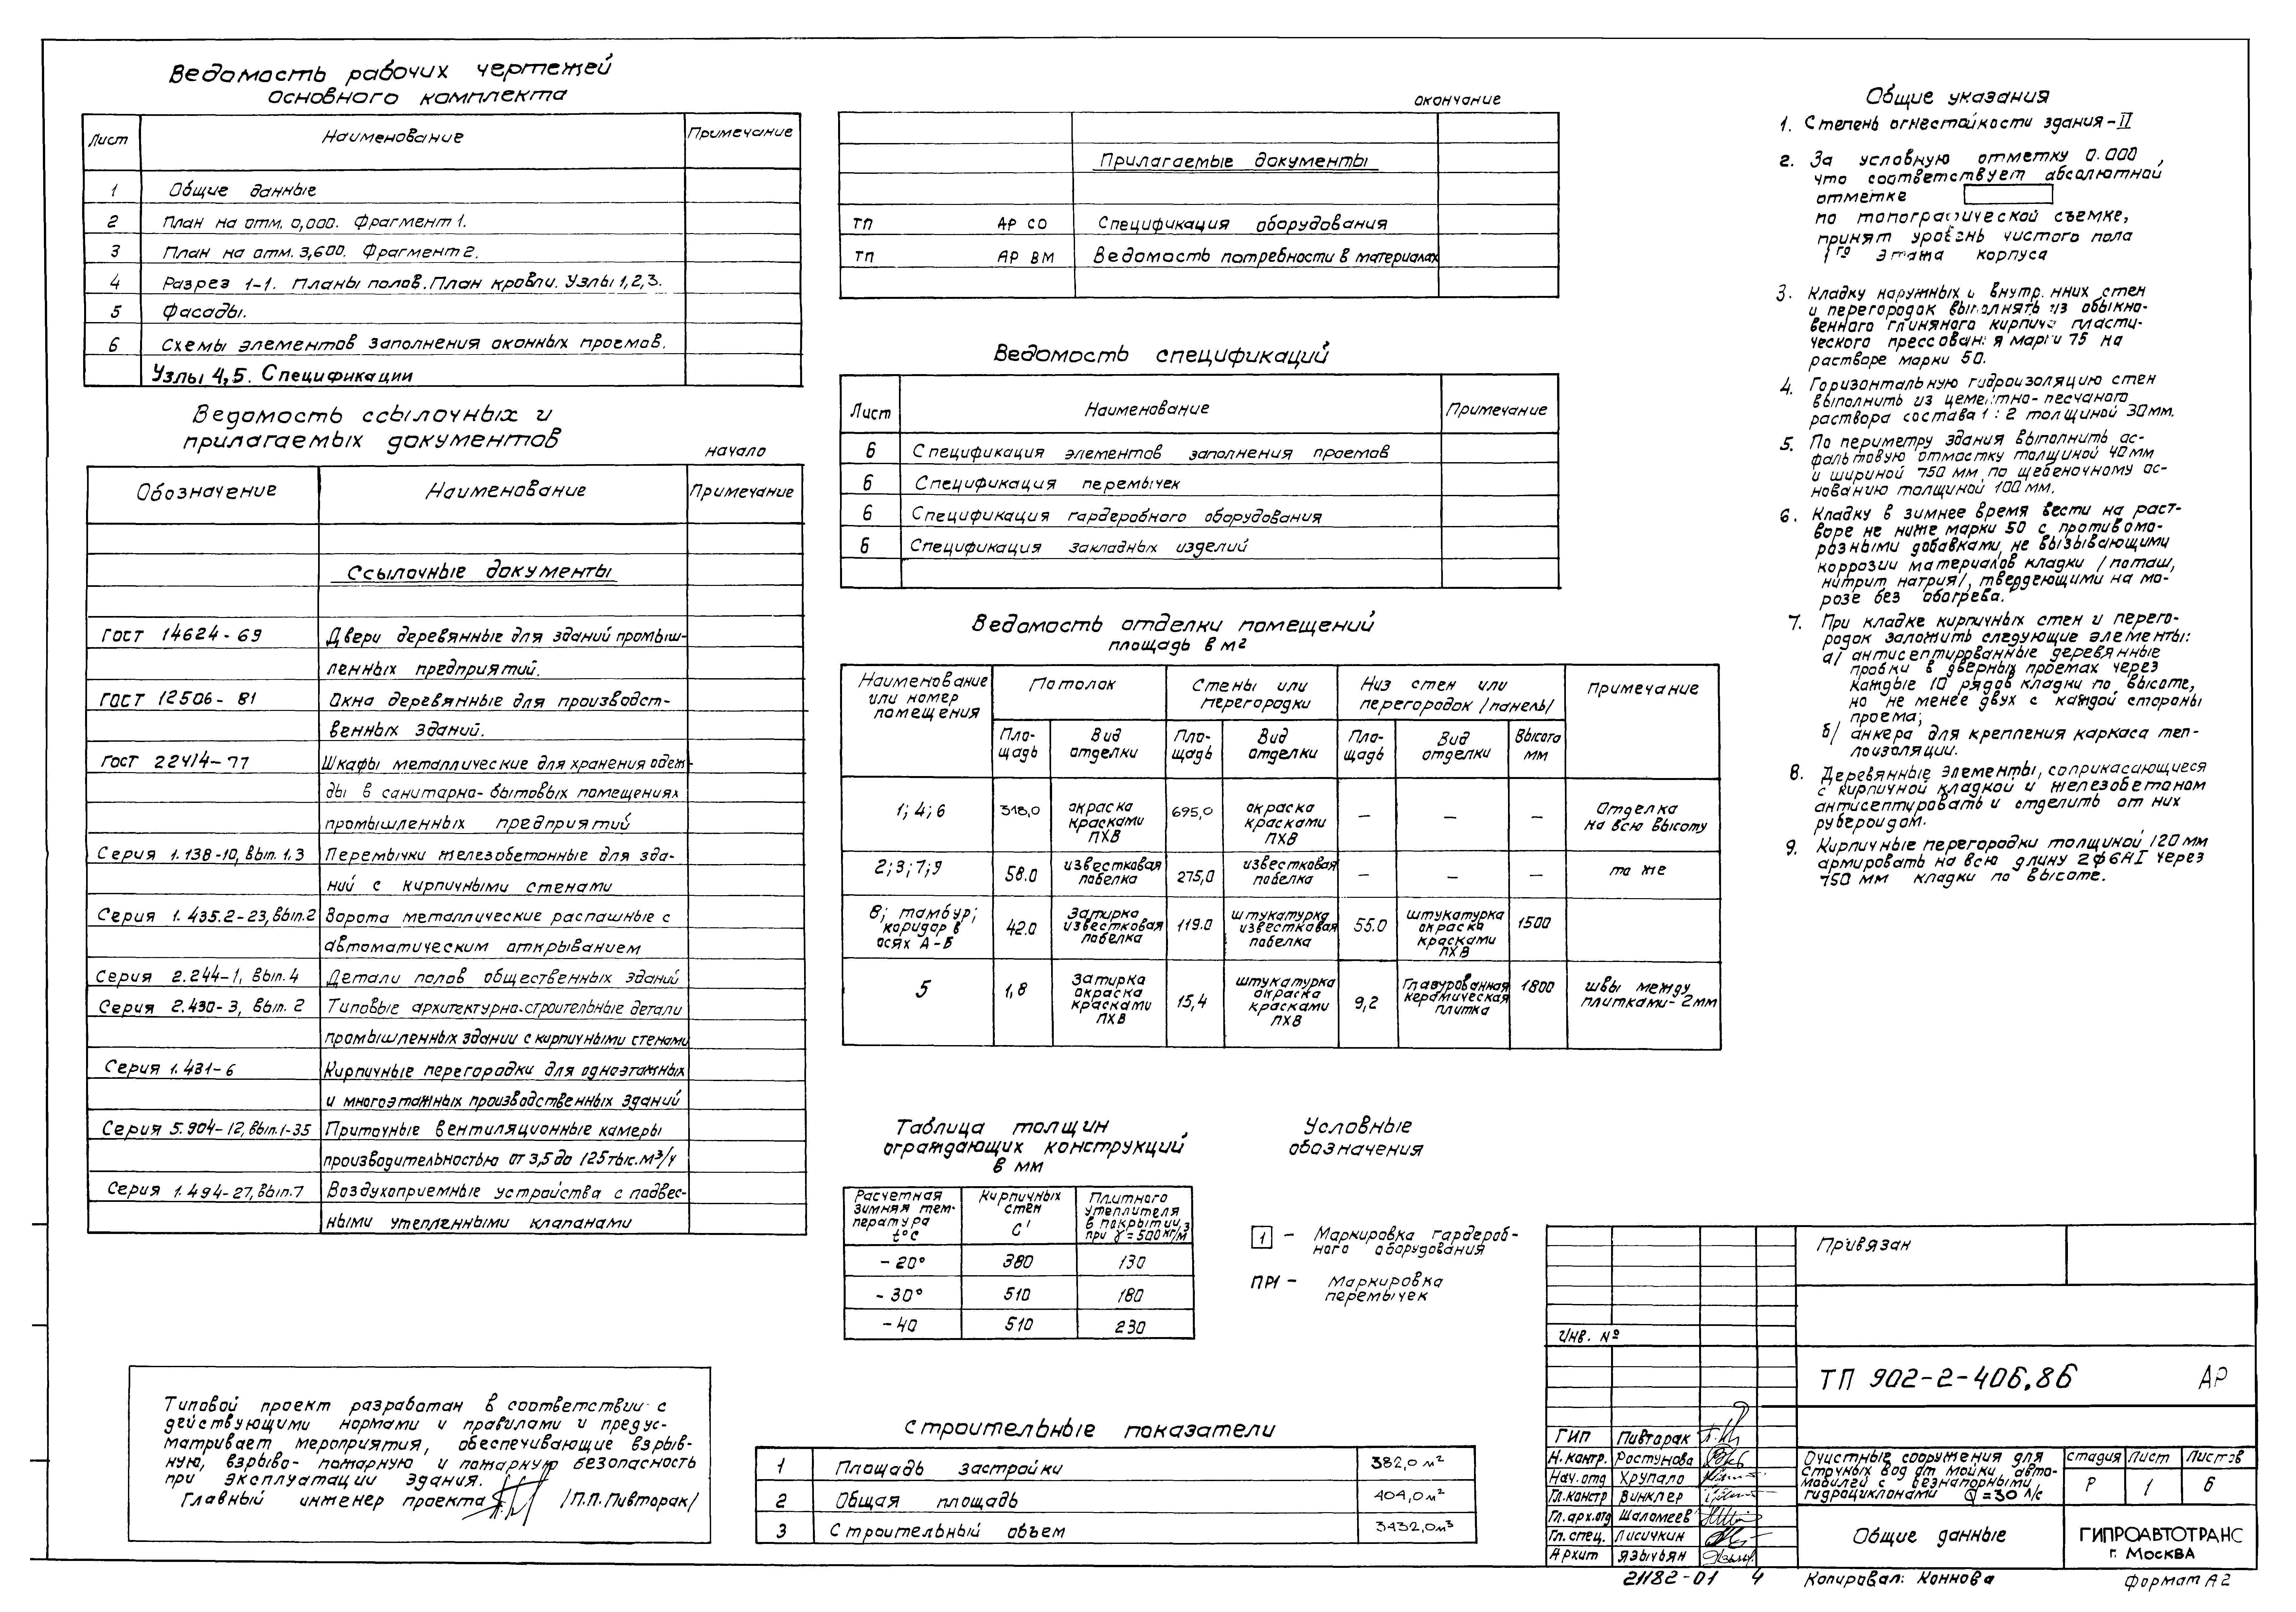 Ведомость рабочих чертежей
основного комплекта
Лист Наименование Примечание
1 Общие данные
2 План на отм. 0,000. Фрагмент 1.
3 План на отм. 3,600. Фрагмент 2.
4 Разрез 1-1. Планы полов. План кровли. Узлы 1,2,3.
5 Фасады.
6 Схемы элементов заполнения оконных проемов.
Узлы 4,5. Спецификации
Ведомость ссылочных и
прилагаемых документов
начало
Обозначение Наименование Примечание
Ссылочные документы
ГОСТ 14624-69 Двери деревянные для зданий промыш-
ленных предприятий.
ГОСТ 12506-81 Окна деревянные для производст-
венных зданий.
ГОСТ 22414-77 Шкафы металлические для хранения одеж-
ды в санитарно-бытовых помещениях
промышленных предприятий
Серия 1.138-10, вып. 1.3 Перемычки железобетонные для зда-
ний с кирпичными стенами
Серия 1.435.2-23, вып.2 Ворота металлические распашные с
автоматическим открыванием
Серия 2.244-1, вып. 4 Детали полов общественных зданий
Серия 2.430-3, вып. 2 Типовые архитектурно-строительные детали
промышленных здании с кирпичными стенами
Серия 1.431-6 Кирпичные перегородки для одноэтажных
и многоэтажных производственных зданий
Серия 5.904-12, вып.1-35 Приточные вентиляционные камеры
производительностью от 3,5 до 125 тыс. м³/ч
Серия 1.494-27, вып.7 Воздухоприемные устройства с подвес-
ными утепленными клапанами
Типовой проект разработан в соответствии с
действующими нормами и правилами и предус-
матривает мероприятия, обеспечивающие взрыв-
ную, взрыво- пожарную и пожарную безопасность
при эксплуатации здания.
Главный инженер проекта /П.П.Пивторак/
окончание
Прилагаемые документы
ТП АР СО Спецификация оборудования
ТП АР ВМ Ведомость потребности в материалах
Ведомость спецификаций
Лист Наименование Примечание
6 Спецификация элементов заполнения проемов
6 Спецификация перемычек
6 Спецификация гардеробного оборудования
6 Спецификация закладных изделий
Ведомость отделки помещений
площадь в м²
Наименование или номер помещения Потолок Стены или перегородки Низ стен или перегородок /панель/ Примечание
Пло-щадь Вид отделки Пло-щадь Вид отделки Пло-щадь Вид отделки Высота мм
1; 4; 6 318,0 окраска красками ПХВ 695,0 окраска красками ПХВ — — — Отделка на всю высоту
2; 3; 7; 9 58.0 известковая побелка 275,0 известковая побелка — — — то же
8; тамбур; коридор в осях А-Б 42.0 Затирка известковая побелка 119.0 штукатурка известковая побелка 55.0 штукатурка окраска красками ПХВ 1500
5 1,8 Затирка окраска красками ПХВ 15,4 штукатурка окраска красками ПХВ 9,2 Глазурованная керамическая плитка 1800 швы между плитками-2мм
Таблица толщин
ограждающих конструкций
в мм
Расчетная зимняя тем-пература t°C Кирпичных стен С' Плитного утеплителя в покрытии при γ=500 кг/м³
-20° 380 130
-30° 510 180
-40 510 230
Условные
обозначения
1 — Маркировка гардероб-
ного оборудования
ПР1 — Маркировка
перемычек
Строительные показатели
1 Площадь застройки 382,0 м²
2 Общая площадь 404,0 м²
3 Строительный объем 3432,0 м³
Общие указания
1. Степень огнестойкости здания-II
2. За условную отметку 0.000,
что соответствует абсолютной
отметке
по топографической съемке,
принят уровень чистого пола
1го этажа корпуса
3. Кладку наружных и внутренних стен
и перегородок выполнять из обыкно-
венного глиняного кирпича пласти-
ческого прессования марки 75 на
растворе марки 50.
4. Горизонтальную гидроизоляцию стен
выполнить из цементно-песчаного
раствора состава 1:2 толщиной 30мм.
5. По периметру здания выполнить ас-
фальтовую отмостку толщиной 40мм
и шириной 750 мм по щебеночному ос-
нованию толщиной 100 мм.
6. Кладку в зимнее время вести на раст-
воре не ниже марки 50 с противомо-
розными добавками, не вызывающими
коррозии материалов кладки /поташ,
нитрит натрия/, твердеющими на мо-
розе без обогрева.
7. При кладке кирпичных стен и перего-
родок заложить следующие элементы:
а/ антисептированные деревянные
пробки в дверных проемах через
каждые 10 рядов кладки по высоте,
но не менее двух с каждой стороны
проема;
б/ анкера для крепления каркаса теп-
лоизоляции.
8. Деревянные элементы, соприкасающиеся
с кирпичной кладкой и железобетоном
антисептировать и отделить от них
рубероидом.
9. Кирпичные перегородки толщиной 120мм
армировать на всю длину 2φ6АI через
750 мм кладки по высоте.
Привязан
Инв. №
ТП 902-2-406.86 АР
ГИП Пивторак
Н. контр. Ростунова
Нач. отд Хрупало
Гл. констр Винклер
Гл. арх. отд Шаломеев
Гл. спец. Лисичкин
Архит Язычьян
Очистные сооружения для
сточных вод от мойки авто-
мобилей с безнапорными
гидроциклонами Q=30 л/с
Стадия Лист Листов
Р 1 6
Общие данные
ГИПРОАВТОТРАНС
г. Москва
21182-01 4
Копировал: Коннова
Формат А2